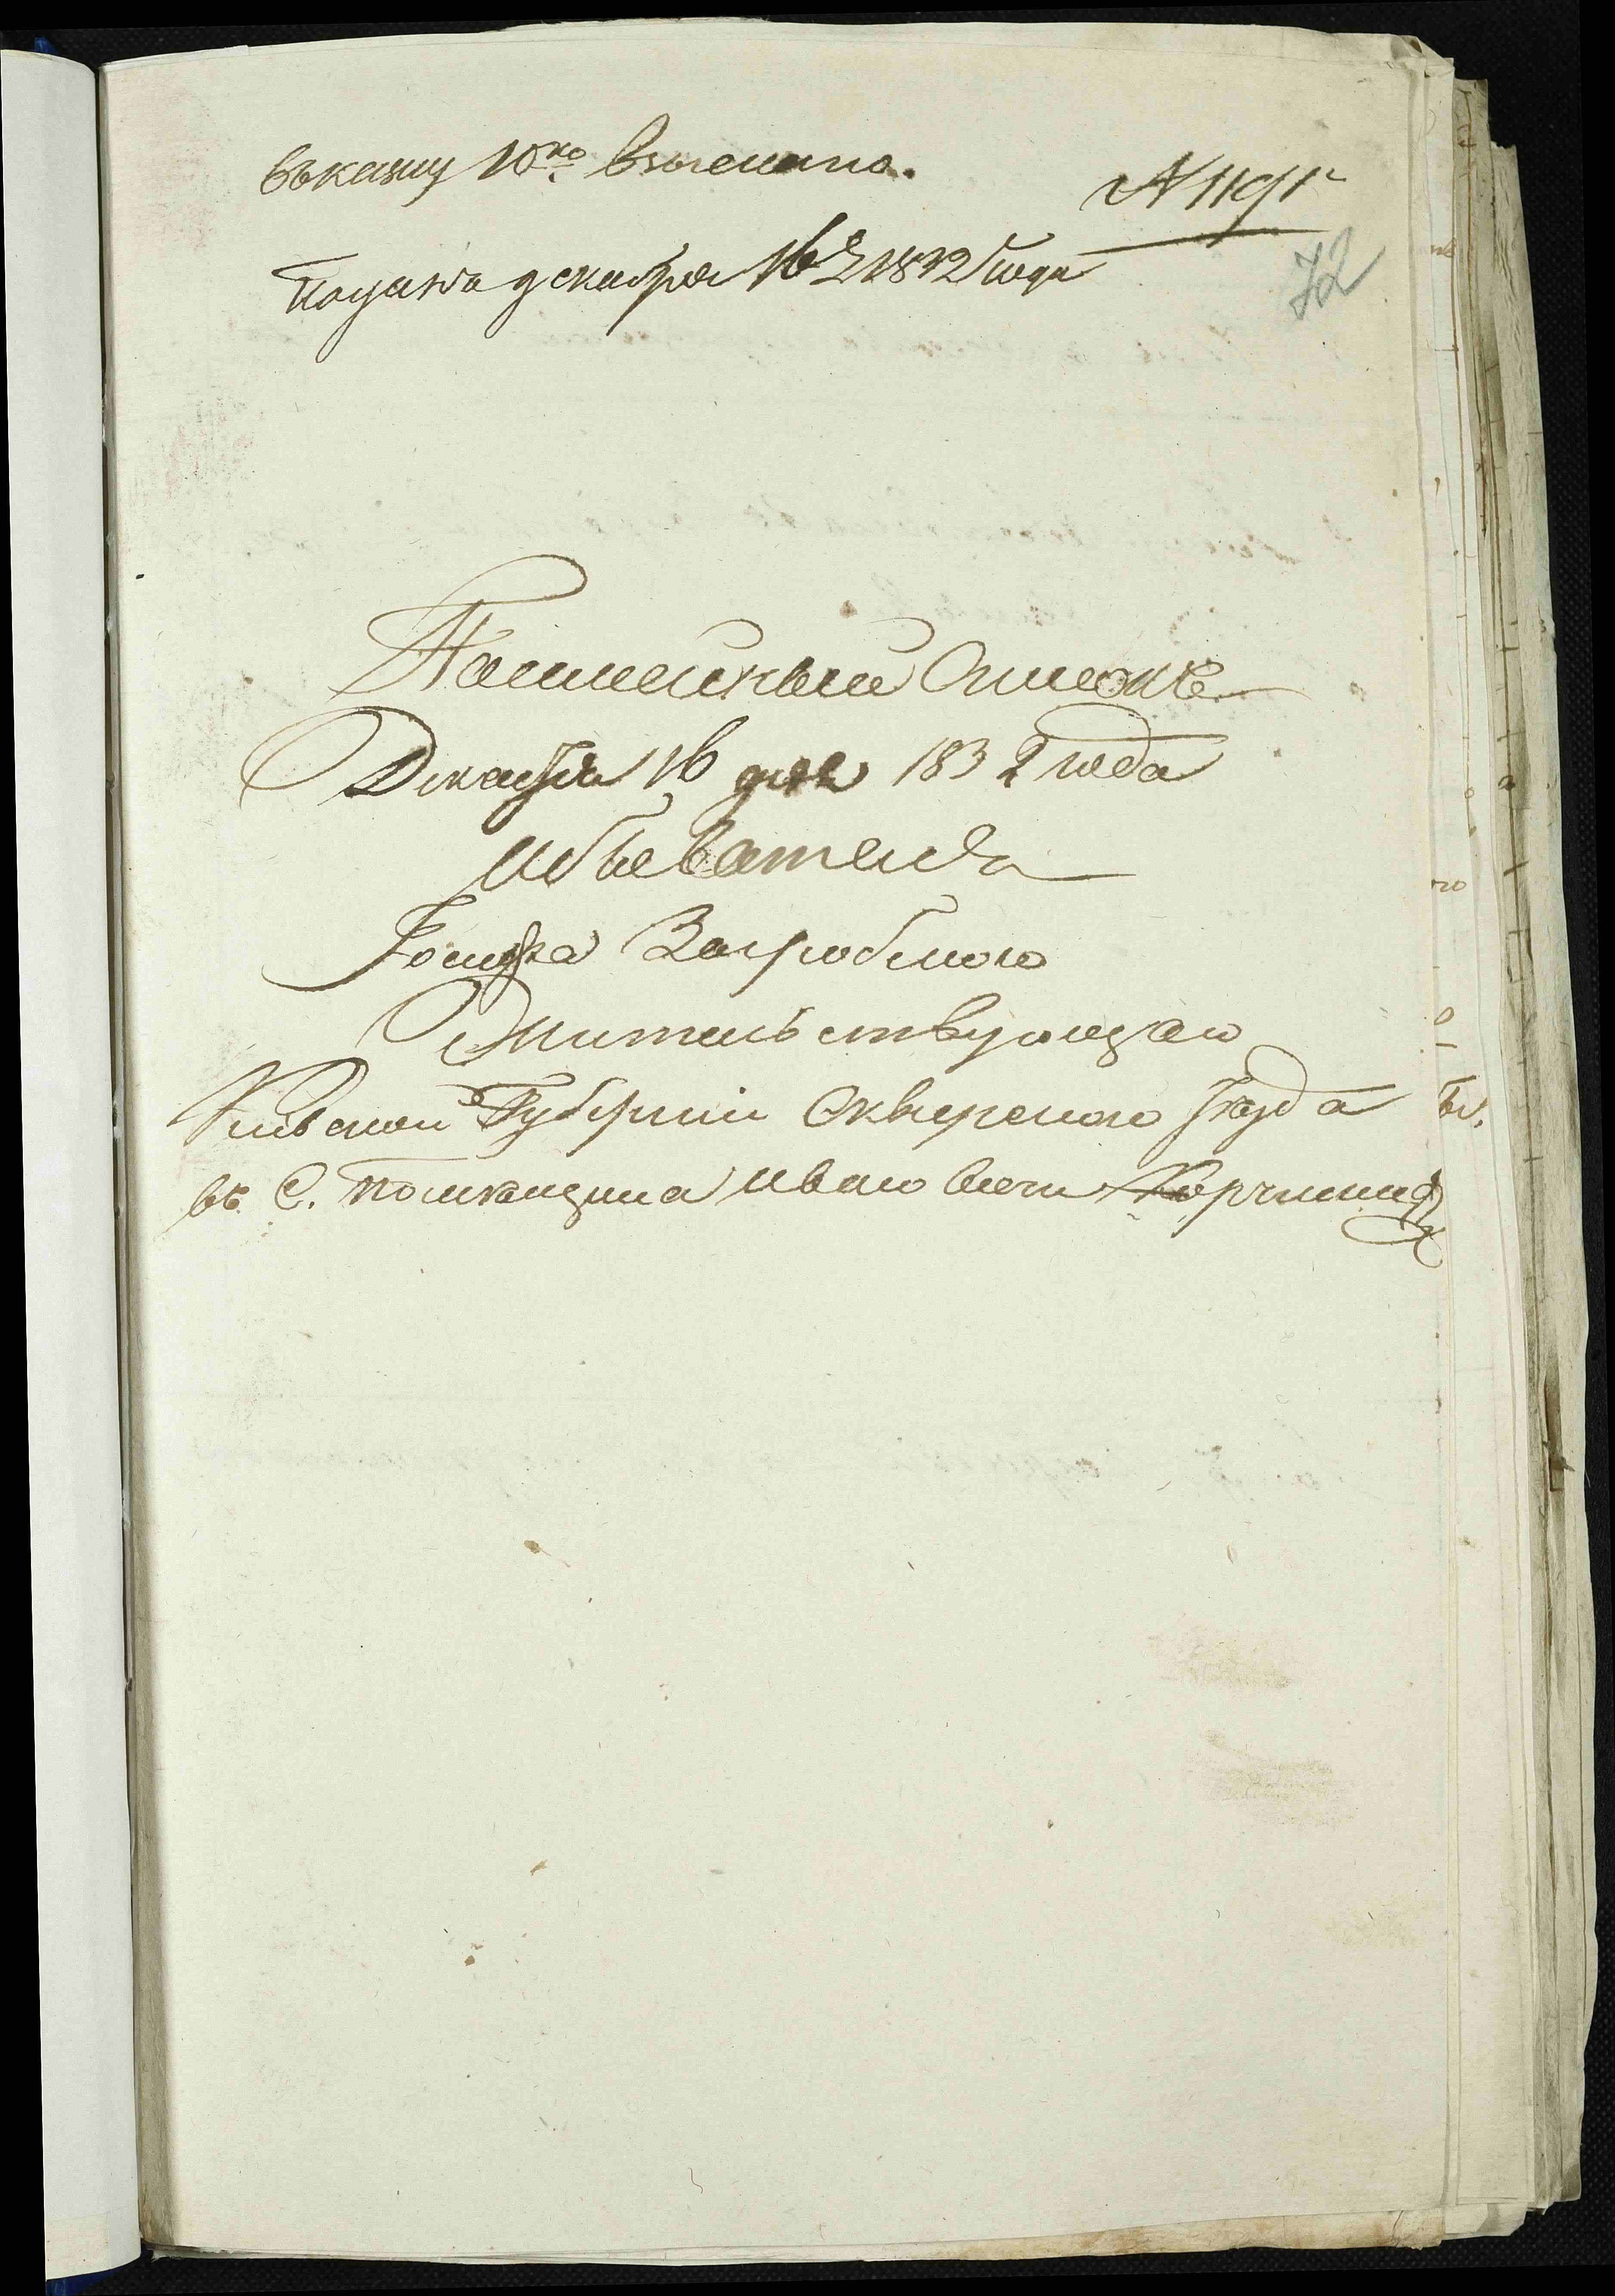 въ казну 10ко взыскано.
№ 1191
подана декабря 16 д 1832 года
72
Поименный Списокъ
Декабря 16 дня 1832 года
Обывателя
Іосифа Загробского
Жительствующаго
Киевской Губерніи Сквирского уезда
въ С. помещика Ивано вичи